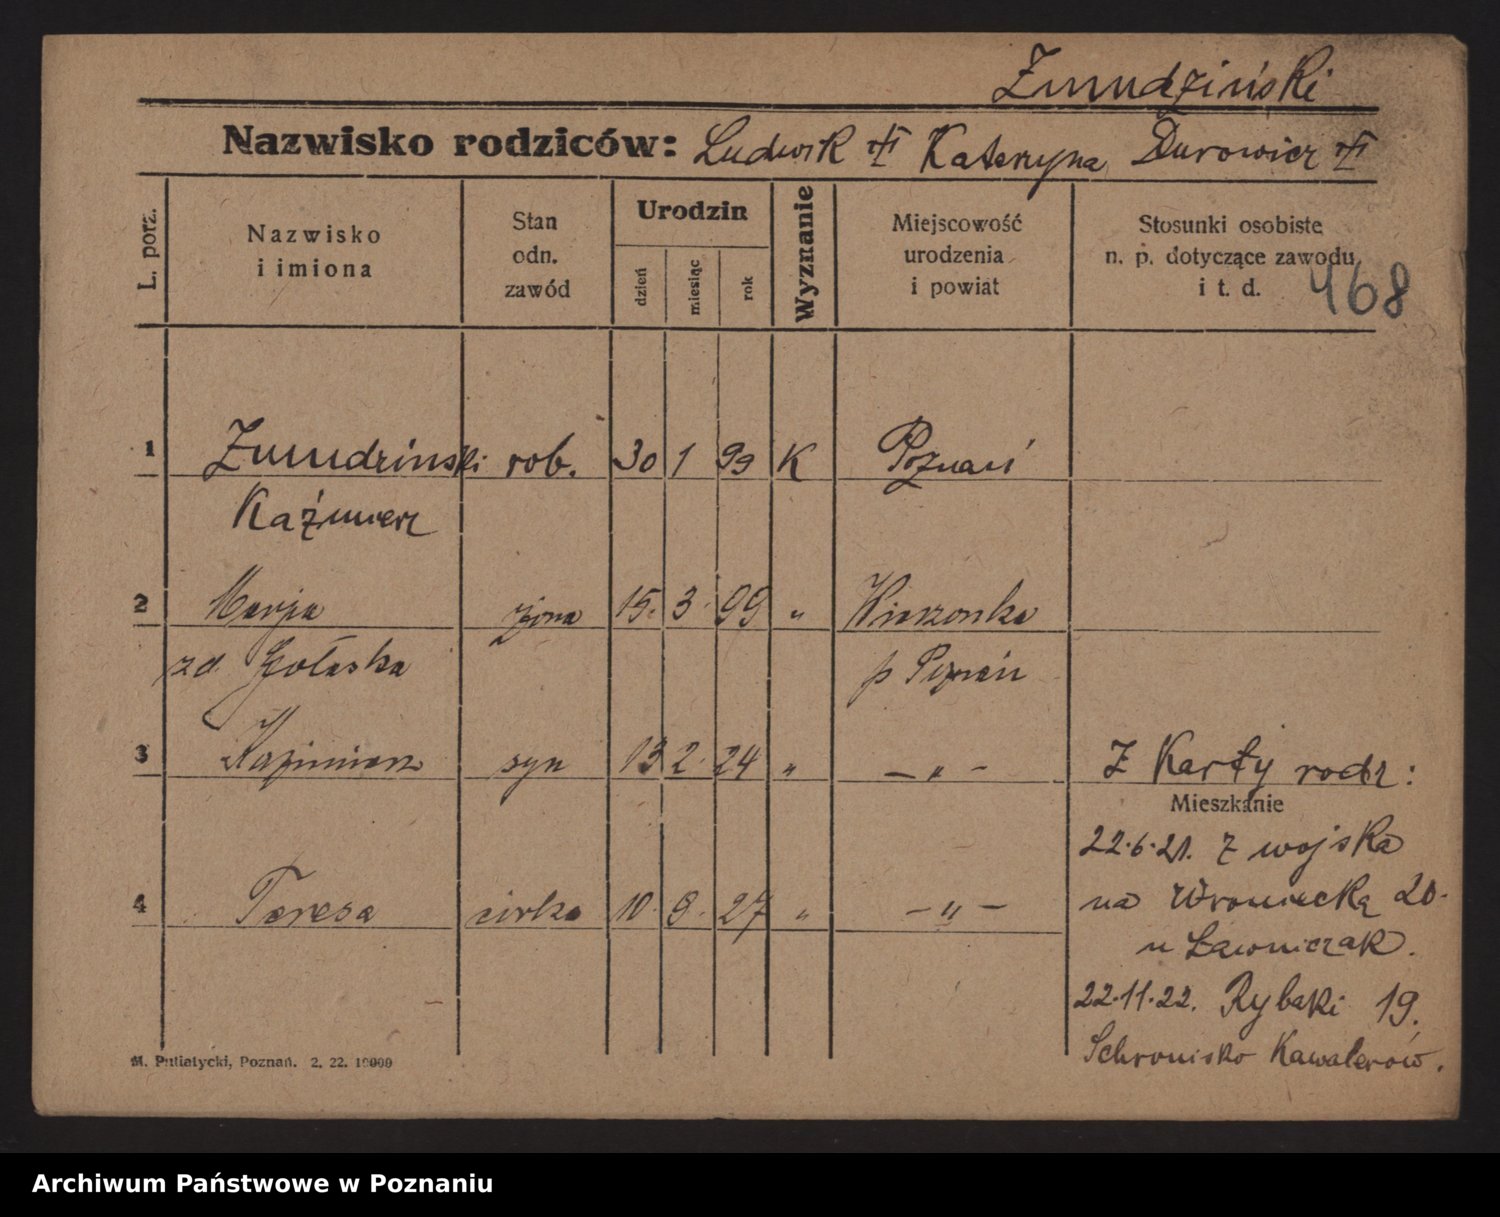 Żmudziński
Nazwisko rodziców: Ludwik Katarzyna Durowicz
L. porz.
Nazwisko
i imiona
Stan
odn.
zawód
Urodzin
dzień
miesiąc
rok
Wyznanie
Miejscowość
urodzenia
i powiat
Stosunki osobiste
n. p. dotyczące zawodu
i t. d.
468
1 Żmudziński rob. 30 1 99 K Poznań
Kaźmierz
2 Marja żona 15. 3. 99 " Wierzonka
zd. Gołaska p Poznań
3 Kazimierz syn 13 2. 24 " — " —
Z Karty rodz:
Mieszkanie
22.6.21. z wojska
na Wroniecką 20.
4 Teresa córka 10. 8. 27 " — " —
u Ławniczak.
22.11.22. Rybaki 19.
Schronisko Kawalerów.
M. Putiatycki, Poznań. 2. 22. 10000
Archiwum Państwowe w Poznaniu